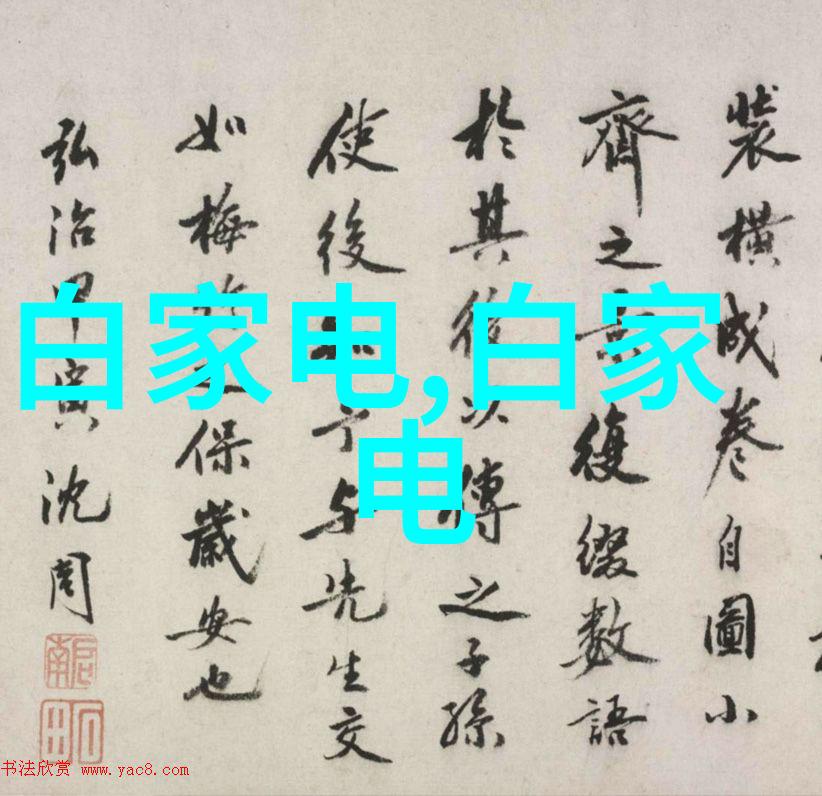 白家电,白家
电
裝橫成卷自圖小
齊之復綴數語
於其後以傳之子孫
使後予与先生交
如梅之保歲安也
弘治甲寅沈周
啓南
书法欣赏 www.yac8.com